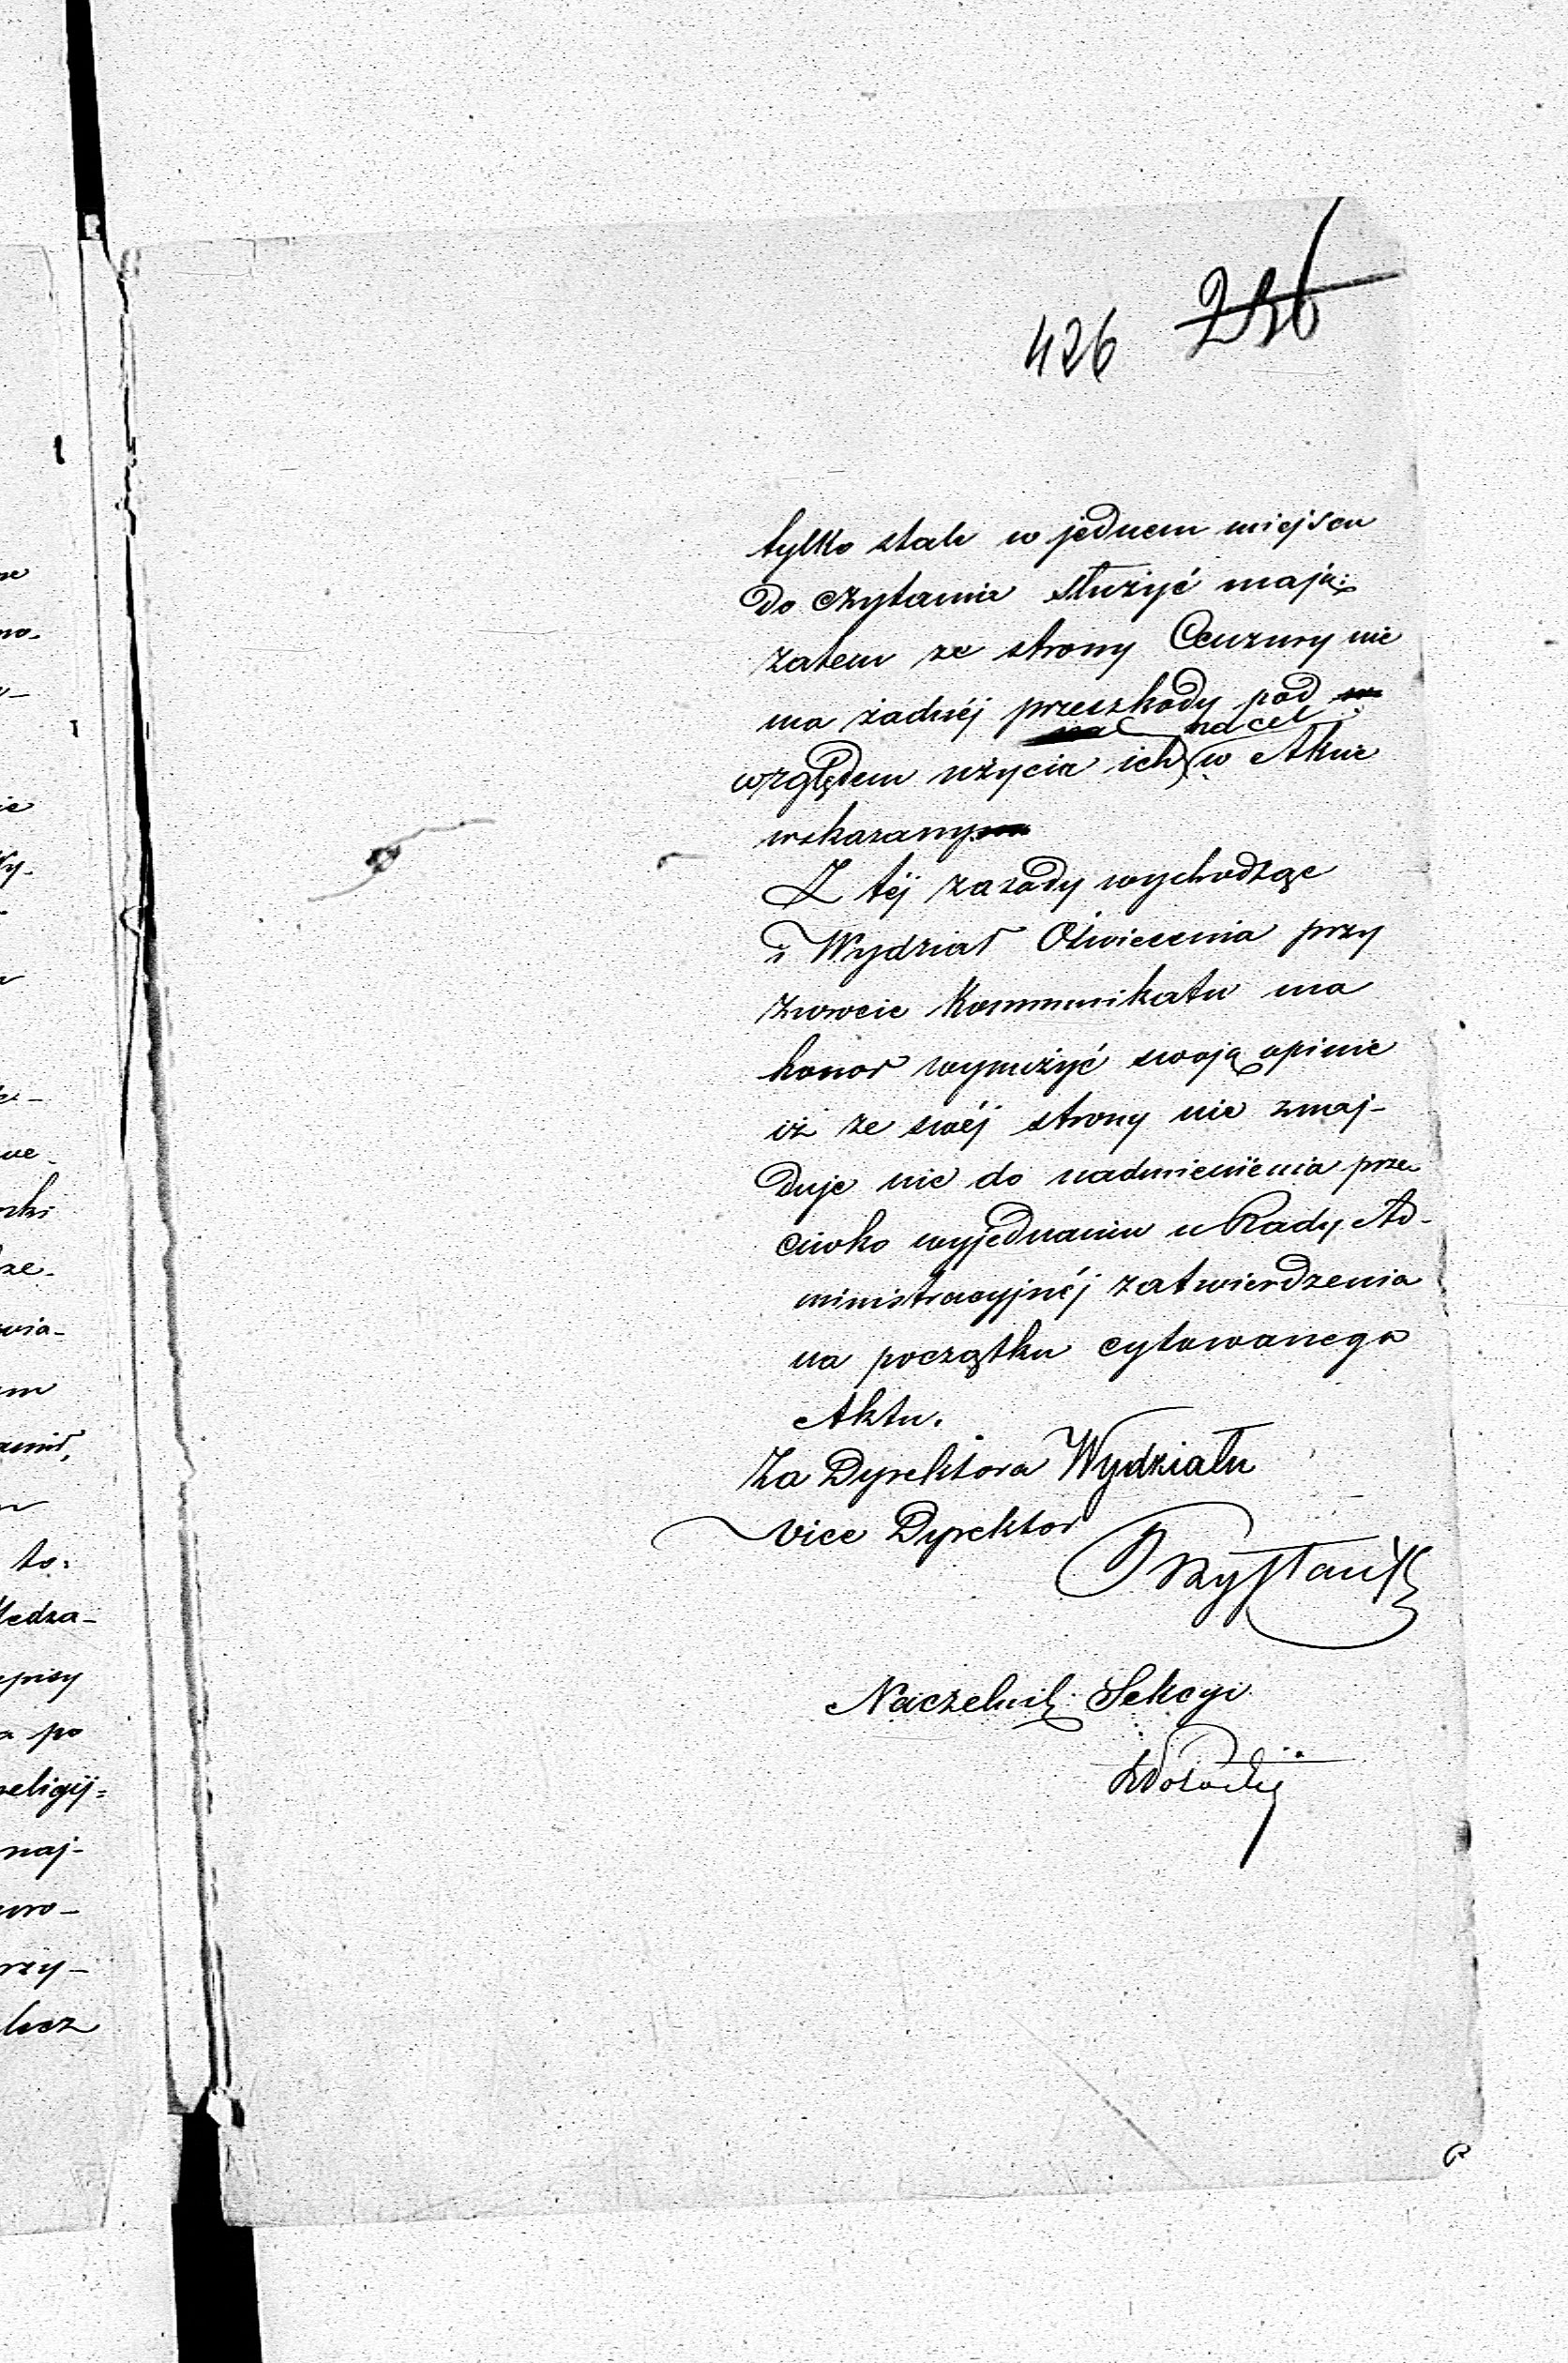 426 236
tylko stale w jednem miejscu
do czytania służyć mają;
zatem ze strony Cenzury nie
ma żadnéj przeszkody pod
na cel
względem użycia ich w Akcie
wskazany
Z téj zasady wychodząc
i Wydział Oświecenia przy
zwrocie Kommunikatu ma
honor wynurzyć swoją opinie
iż ze swéj strony nie znaj-
duje nic do nadmienienia prze-
ciwko wyjednaniu u Rady Ad-
ministracyjnéj zatwierdzenia
na początku cytowanego
Aktu.
Za Dyrektora Wydziału
Vice Dyrektor
Naczelnik Sekcyi
ne
no-
ie
Wy-
ne-
ze-
wia-
em
to:
ledza-
episy
a po
religij=
naj-
wro-
rzy-
lecz